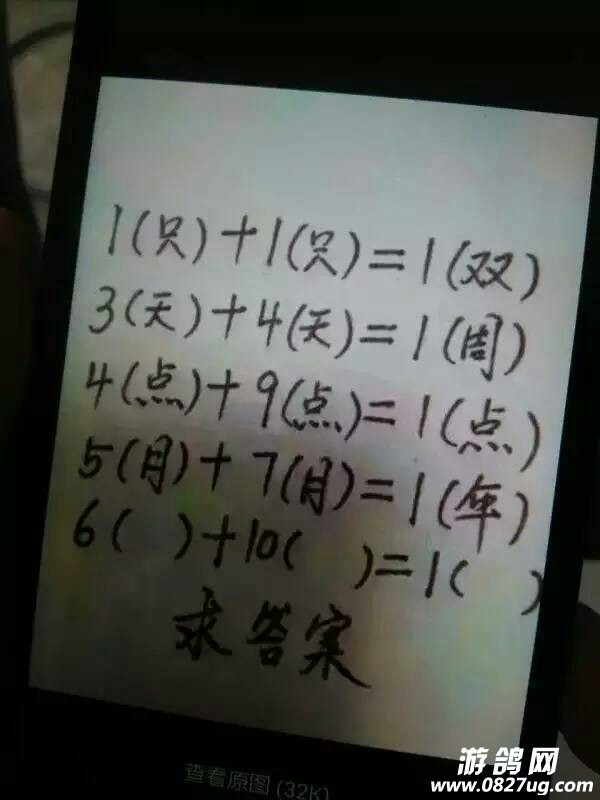 1(只)+1(只)=1(双)
3(天)+4(天)=1(周)
4(点)+9(点)=1(点)
5(月)+7(月)=1(年)
6( )+10( )=1( )
求答案
查看原图 (32K)
游鸽网
www.0827ug.com